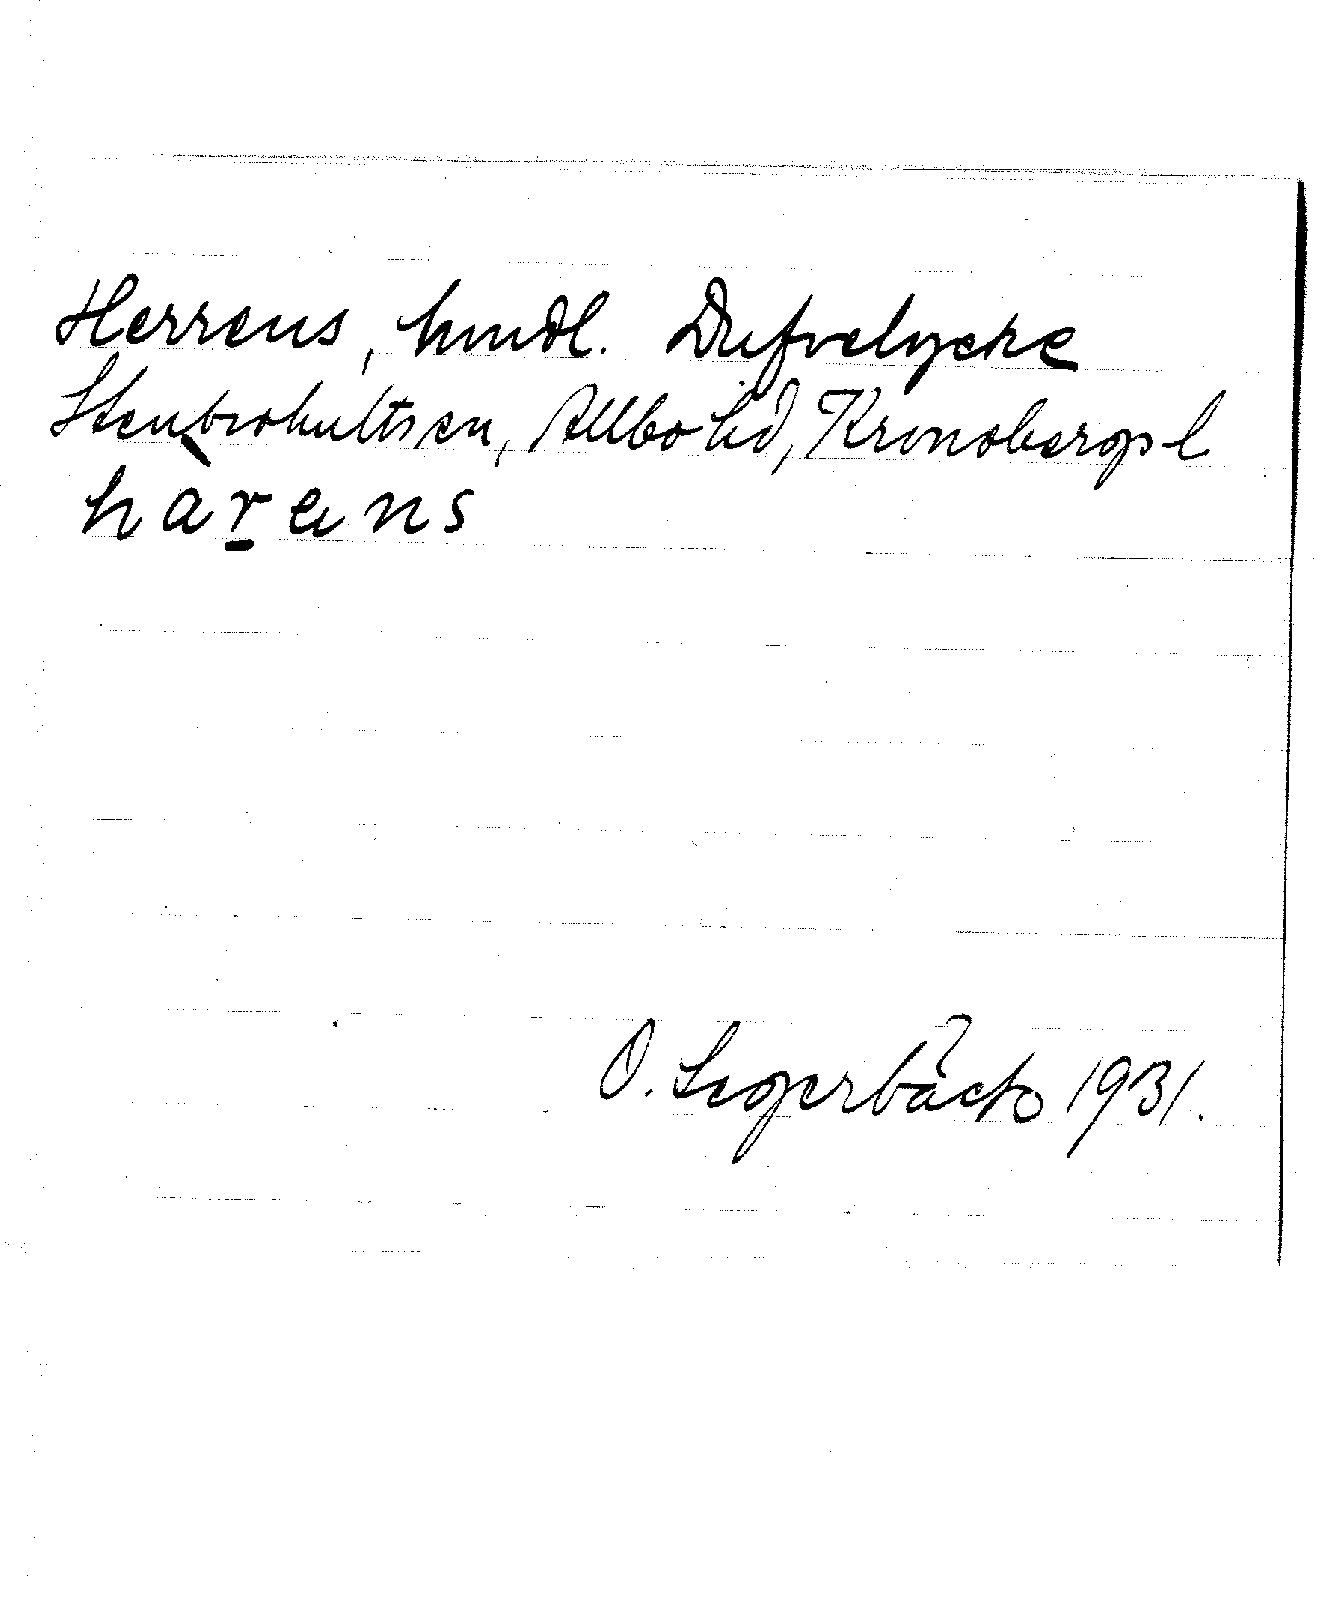 Herrens, hmdl. Dufvelycke
Stenbrohults sn, Allbo hd, Kronobergs l
hàr̲ens
O. Segerbäck 1931.